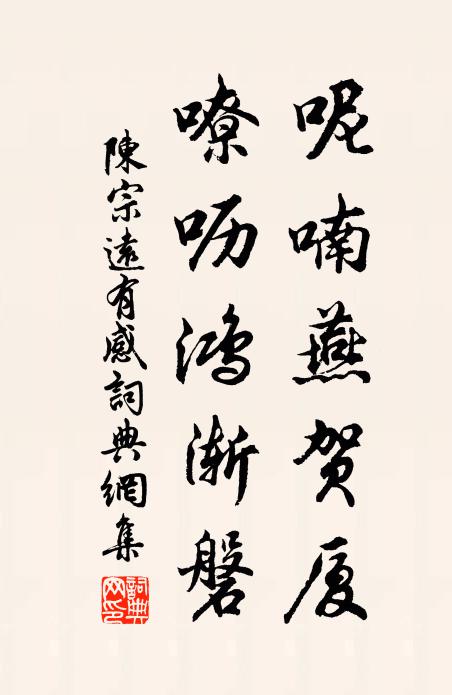 呢喃燕贺厦
嘹呖鸿渐磐
陳宗遠有感詞典網集
詞典网印